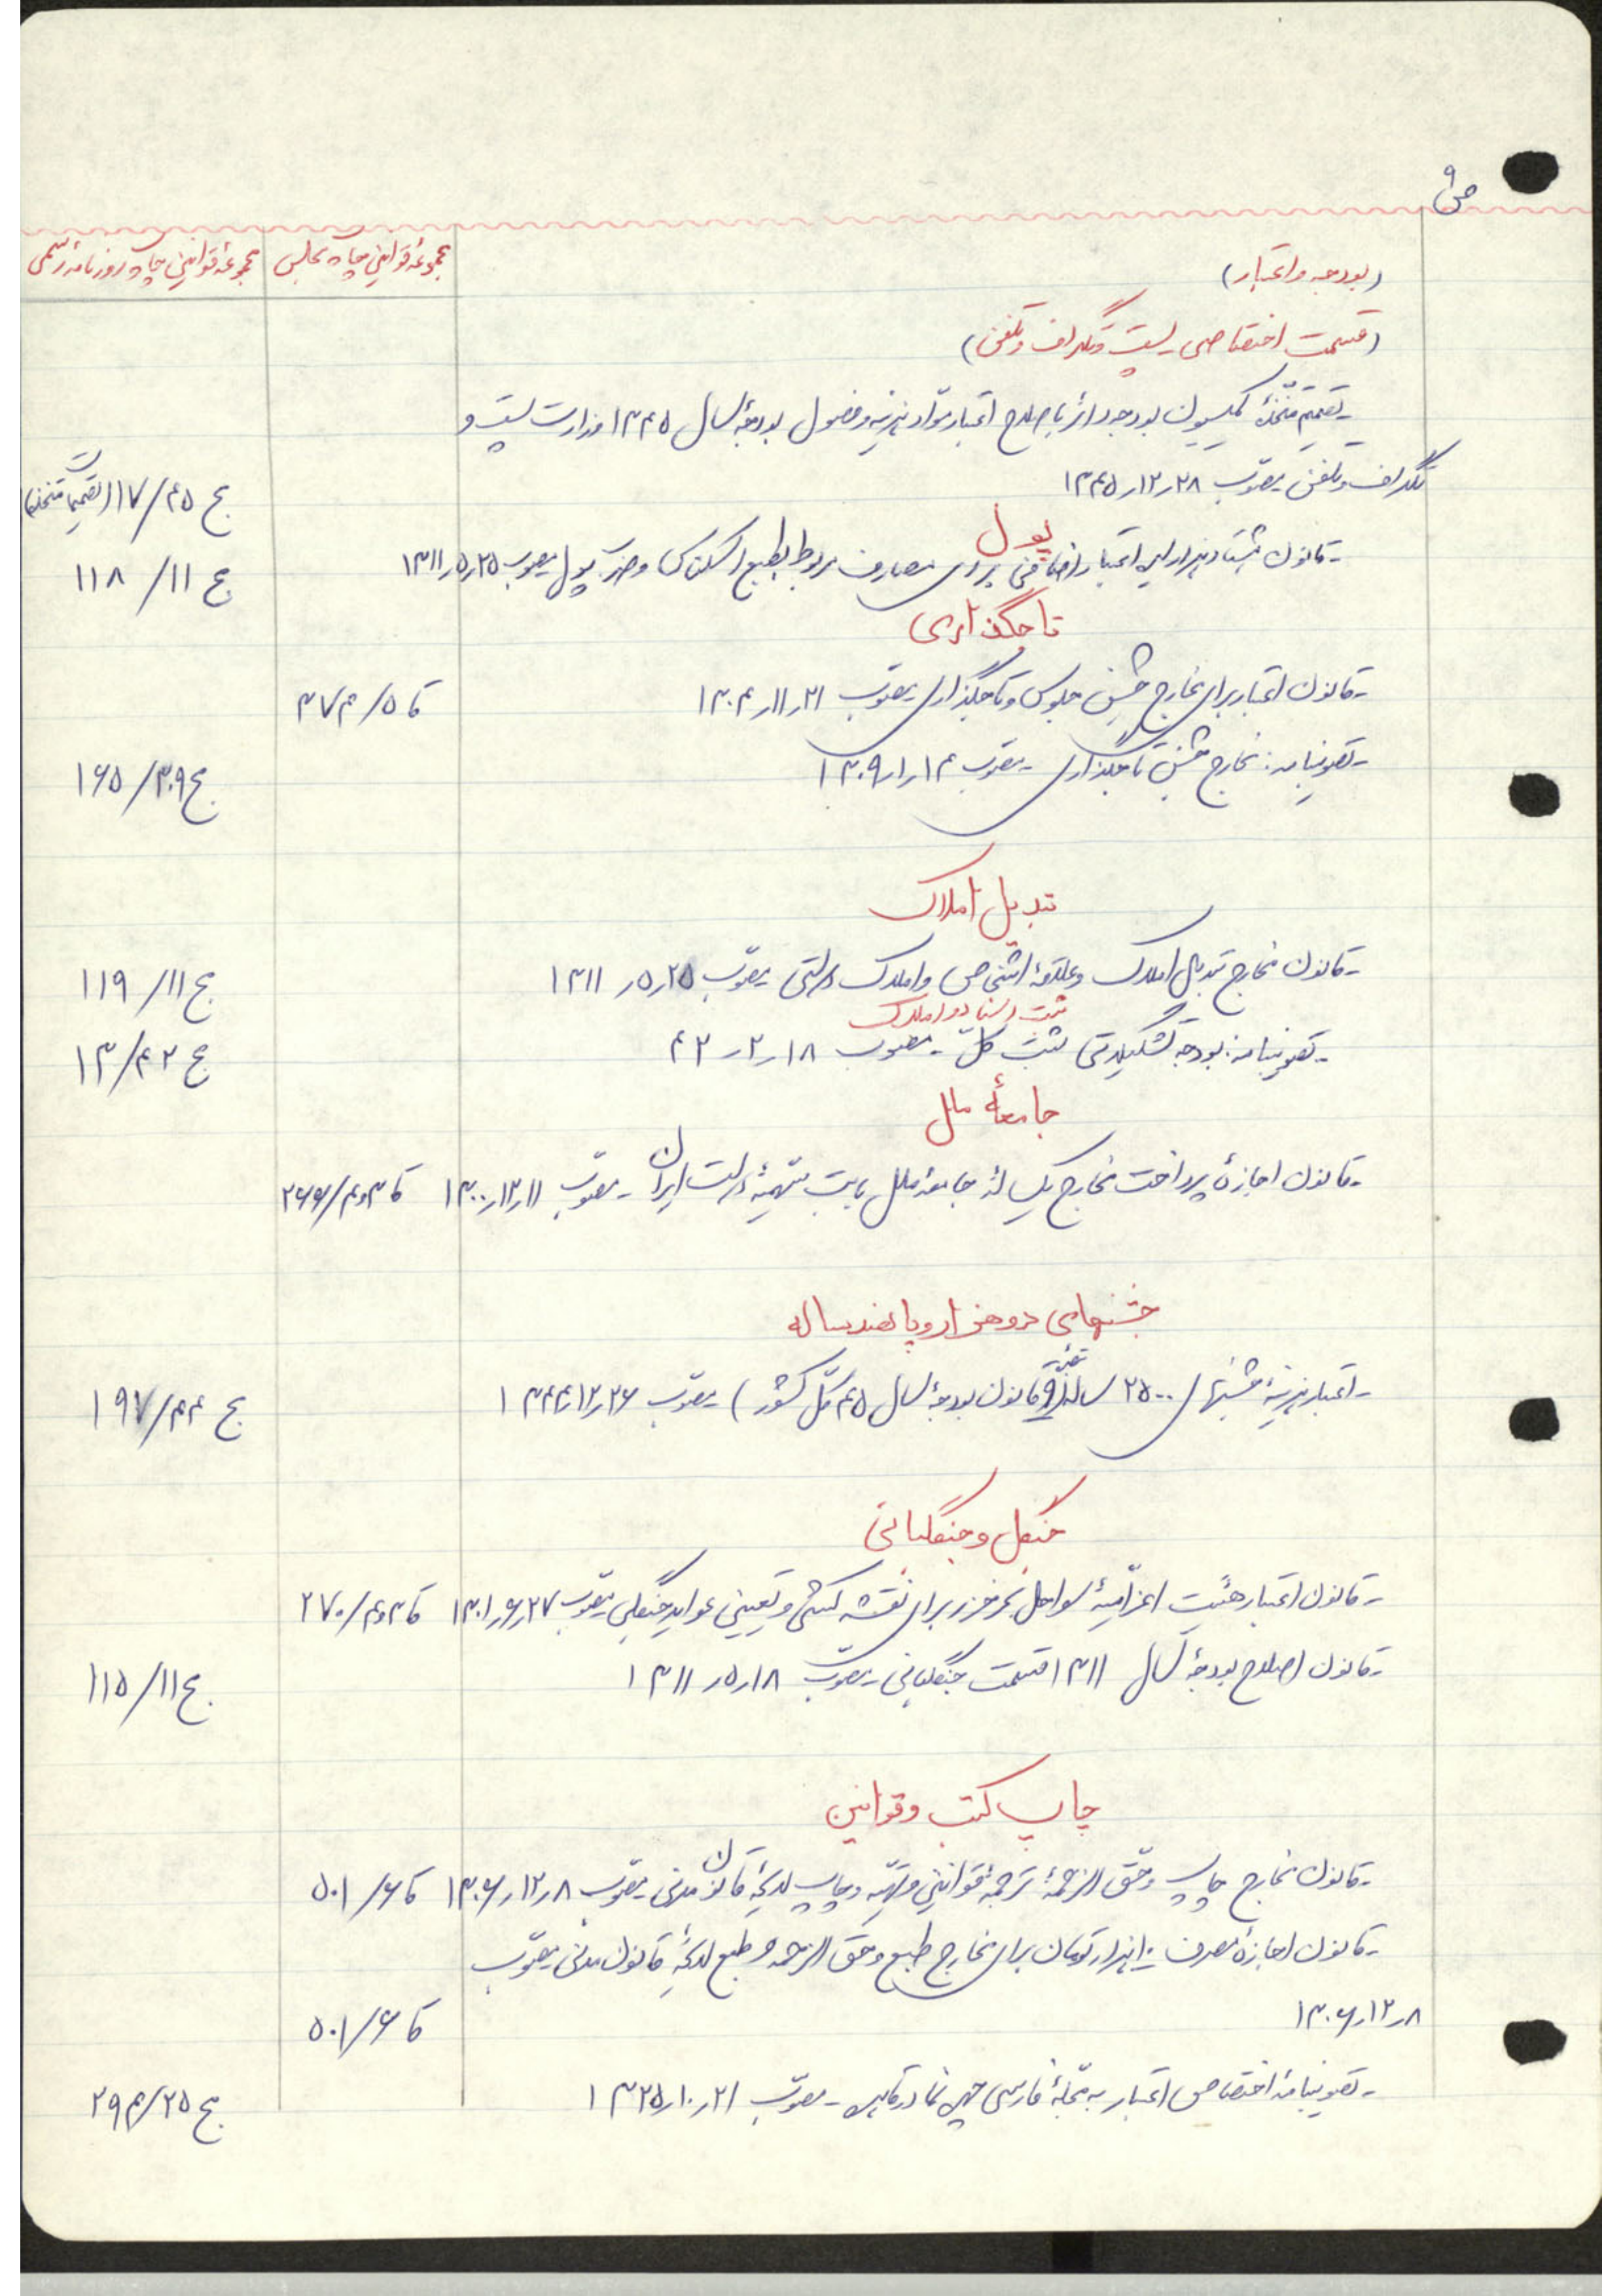 ص ۹
مجموعهٔ قوانین چاپ مجلس مجموعهٔ قوانین چاپ روزنامهٔ رسمی
(بودجه و اعتبار)
(قسمت اختصاصی پست و تلگراف و تلفن)
-تصمیم متخذهٔ کمیسیون بودجه دائر باصلاح اعتبار مواد هزینه و فصول بودجهٔ سال ۱۳۴۵ وزارت پست و
تلگراف و تلفن مصوّب ۲۸ر۱۲ر۱۳۴۵ ج ۴۵/ ۱۱۷ (تصمیمات متخذه)
پول
-قانون هشتاد هزار لیره اعتبار اضافی برای مصارف مربوط بطبع اسکناس و ضرب پول مصوب ۲۵ر۵ر۱۳۱۱ ج ۱۱/ ۱۱۸
تاجگذاری
-قانون اعتبار برای مخارج جشن جلوس و تاجگذاری مصوّب ۲۱ر۱۱ر۱۳۰۴ کا ۵/ ۳۷۴
-تصویبنامه: مخارج جشن تاجگذاری -مصوب ۱۴ر۱ر۱۳۰۹ ج ۳۰۹/ ۱۶۵
تبدیل املاک
-قانون مخارج تبدیل املاک و علاقهٔ اشخاص و املاک دولتی مصوّب ۲۵ر۵ر ۱۳۱۱ ج ۱۱/ ۱۱۹
ثبت اسناد و املاک
-تصویبنامه: بودجه تشکیلاتی ثبت کلّ -مصوب ۱۸ر۲ر ۴۲ ج ۴۲/ ۱۳
جامعهٔ ملل
-قانون اجازهٔ پرداخت مخارج یکسالهٔ جامعهٔ ملل بابت سهمیهٔ دولت ایران -مصوّب ۱۱ر۱۲ر۱۳۰۰ کا ۳و۴/ ۲۶۶
جشنهای دوهزار و پانصد ساله
-اعتبار هزینهٔ جشنهای ۲۵۰۰ ساله (تبصرهٔ ۹ قانون بودجهٔ سال ۴۵ کلّ کشور) -مصوّب ۲۶ر۱۲ر۱۳۴۴ ج ۴۴/ ۱۹۷
جنگل و جنگلبانی
-قانون اعتبار هیئت اعزامیهٔ سواحل بحر خزر برای نقشه کشی و تعیین عواید جنگلی مصوّب ۲۷ر۶ر۱۳۰۱ کا ۳و۴/ ۲۷۰
-قانون اصلاح بودجهٔ سال ۱۳۱۱ قسمت جنگلبانی -مصوّب ۱۸ر۵ر ۱۳۱۱ ج ۱۱/ ۱۱۵
چاپ کتب و قوانین
-قانون مخارج چاپ و حقّ الزحمهٔ ترجمهٔ قوانین و تهیّه و چاپ لایحهٔ قانون مدنی مصوّب ۸ر۱۲ر۱۳۰۶ کا ۶/ ۵۰۱
-قانون اجازهٔ مصرف ۱۰هزار تومان برای مخارج طبع و حق الزحمه و طبع لایحهٔ قانون مدنی مصوّب
۸ر۱۲ر۱۳۰۶ کا ۶/ ۵۰۱
-تصویبنامهٔ اختصاص اعتبار به مجلّهٔ فارسی چهره‌نما در قاهره -مصوّب ۲۱ر۱۰ر۱۳۲۵ ج ۲۵/ ۲۹۴